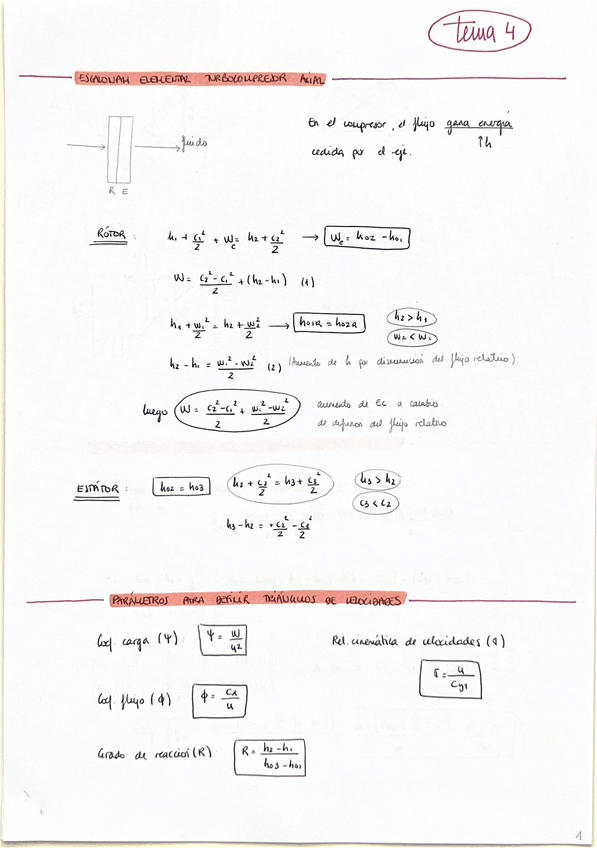 tema 4
ESCALONAM ELEMENTAL TURBOCOMPRESOR AXIAL
En el compresor, el flujo gana energía
↑h
cedida por el eje.
fluido
R E
RÓTOR: h₁ + c₁²/2 + Wc = h₂ + c₂²/2 → Wc = h₀₂ - h₀₁
W = (c₂² - c₁²)/2 + (h₂ - h₁) (1)
h₁ + w₁²/2 = h₂ + w₂²/2 → h₀₁R = h₀₂R h₂ > h₁
w₂ < w₁
h₂ - h₁ = (w₁² - w₂²)/2 (2) (Aumento de h por disminución del flujo relativo)
luego W = (c₂² - c₁²)/2 + (w₁² - w₂²)/2 aumento de Ec a cambio
de difusion del flujo relativo
ESTÁTOR: h₀₂ = h₀₃ h₂ + c₂²/2 = h₃ + c₃²/2 h₃ > h₂
c₃ < c₂
h₃ - h₂ = + c₂²/2 - c₃²/2
PARÁMETROS PARA DEFINIR TRIÁNGULOS DE VELOCIDADES
Coef. carga (Ψ): Ψ = W/u² Rel. cinemática de velocidades (σ)
σ = u/Cy₁
Coef. flujo (ϕ) ϕ = Cx/u
Grado de reacción (R) R = (h₂ - h₁)/(h₀₃ - h₀₁)
1